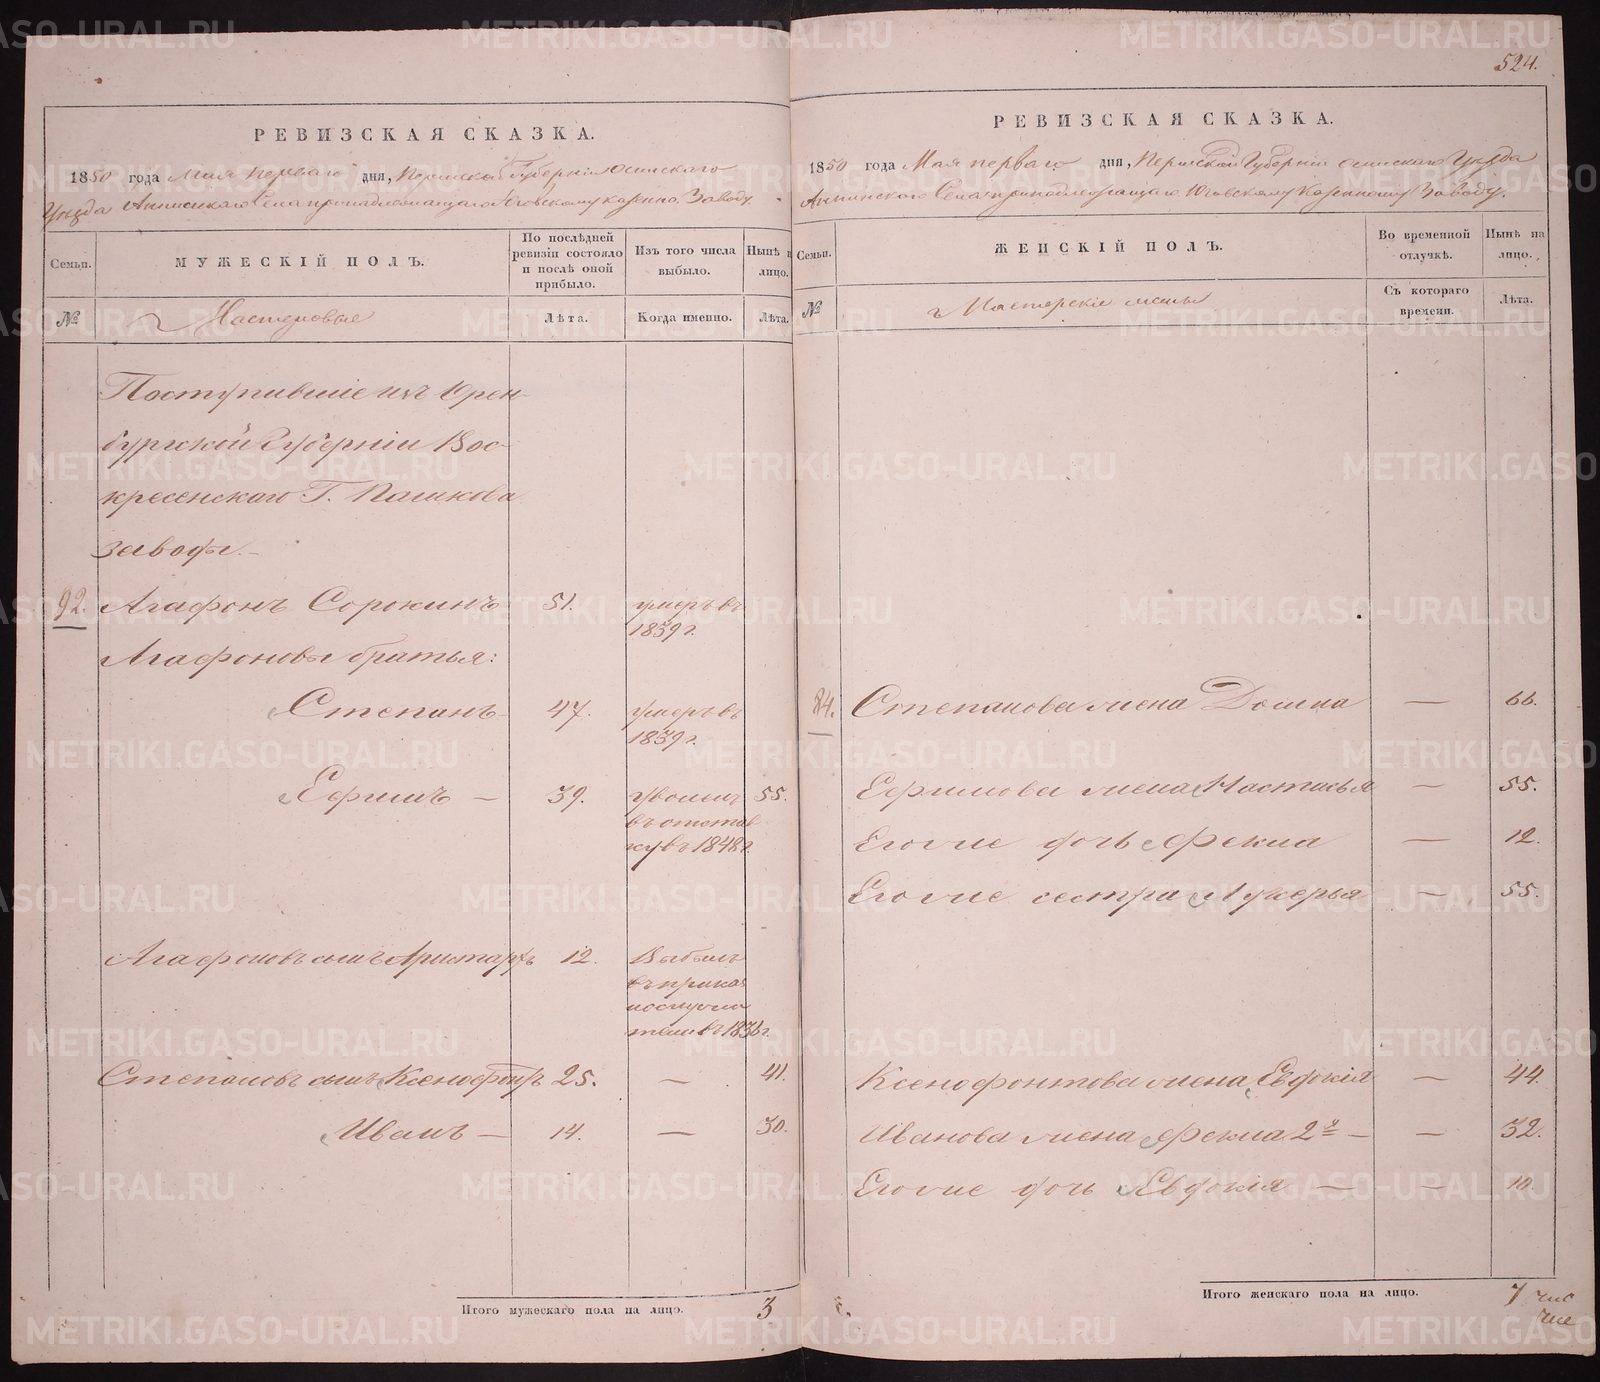 524.
РЕВИЗСКАЯ СКАЗКА.
1850 года Мая перваго дня, Пермской Губерніи Осинскаго
Уѣзда Аннинскаго Села принадлежащаго Юговскому казенно. Заводу.
Семьи.
МУЖЕСКІЙ ПОЛЪ.
По послѣдней ревизіи состояло и послѣ оной прибыло.
Изъ того числа выбыло.
Нынѣ на лицо.
№
Мастеровые
Лѣта.
Когда именно.
Лѣта.
Поступившіе изъ Орен-
бургской Губерніи Вос-
кресенскаго Г. Пашкова
завода.
92. Агафонъ Сорокинъ 51. умеръ въ 1839 г.
Агафоновы братья:
Степанъ 47. умеръ въ 1839 г.
Ефимъ — 39. уволенъ въ отставку въ 1848 г. 55.
Агафоновъ сынъ Аристархъ 12. Выбылъ в 183 г.
Степановъ сынъ Ксенофонтъ 25. — 41.
Иванъ — 14. — 30.
Итого мужескаго пола на лицо. 3
РЕВИЗСКАЯ СКАЗКА.
1850 года Мая перваго дня, Пермской Губерніи Осинскаго Уѣзда
Аннинскаго Села принадлежащаго Юговскому Казенному Заводу.
Семьи.
ЖЕНСКІЙ ПОЛЪ.
Во временной отлучкѣ.
Нынѣ на лицо.
№
Мастерскіе жены
Съ котораго времени.
Лѣта.
84. Степанова жена Домна — 66.
Ефимова жена Настасья — 55.
Его же дочь Фекла — 12.
Его же сестра Лукерья — 55.
Ксенофонтова жена Евдокія — 44.
Иванова жена Фекла 2я — — 32.
Его же дочь Евдокія — — 10.
Итого женскаго пола на лицо. 7
METRIKI.GASO-URAL.RU